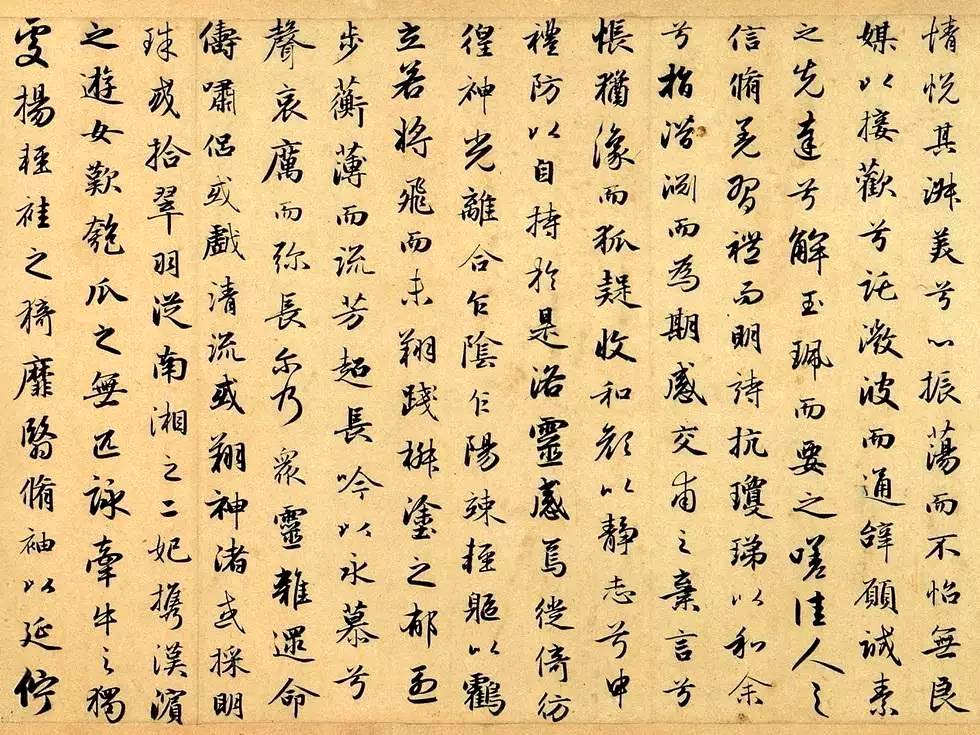 情悅其淑美兮心振蕩而不怡無良
媒以接歡兮託微波而通辭願誠素
之先達兮解玉珮而要之嗟佳人之
信脩羌習禮而明詩抗瓊珶以和余
兮指潛淵而為期感交甫之棄言兮
悵猶豫而狐疑收和顏以静志兮申
禮防以自持於是洛靈感焉徙倚彷
徨神光離合乍陰乍陽竦輕軀以鶴
立若將飛而未翔踐椒塗之郁烈
步蘅薄而流芳超長吟以永慕兮
聲哀厲而弥長尔乃衆靈雜遝命
儔嘯侶或戲清流或翔神渚或採明
珠或拾翠羽從南湘之二妃攜漢濱
之遊女歎匏瓜之無匹詠牽牛之獨
處揚輕袿之猗靡翳脩袖以延佇